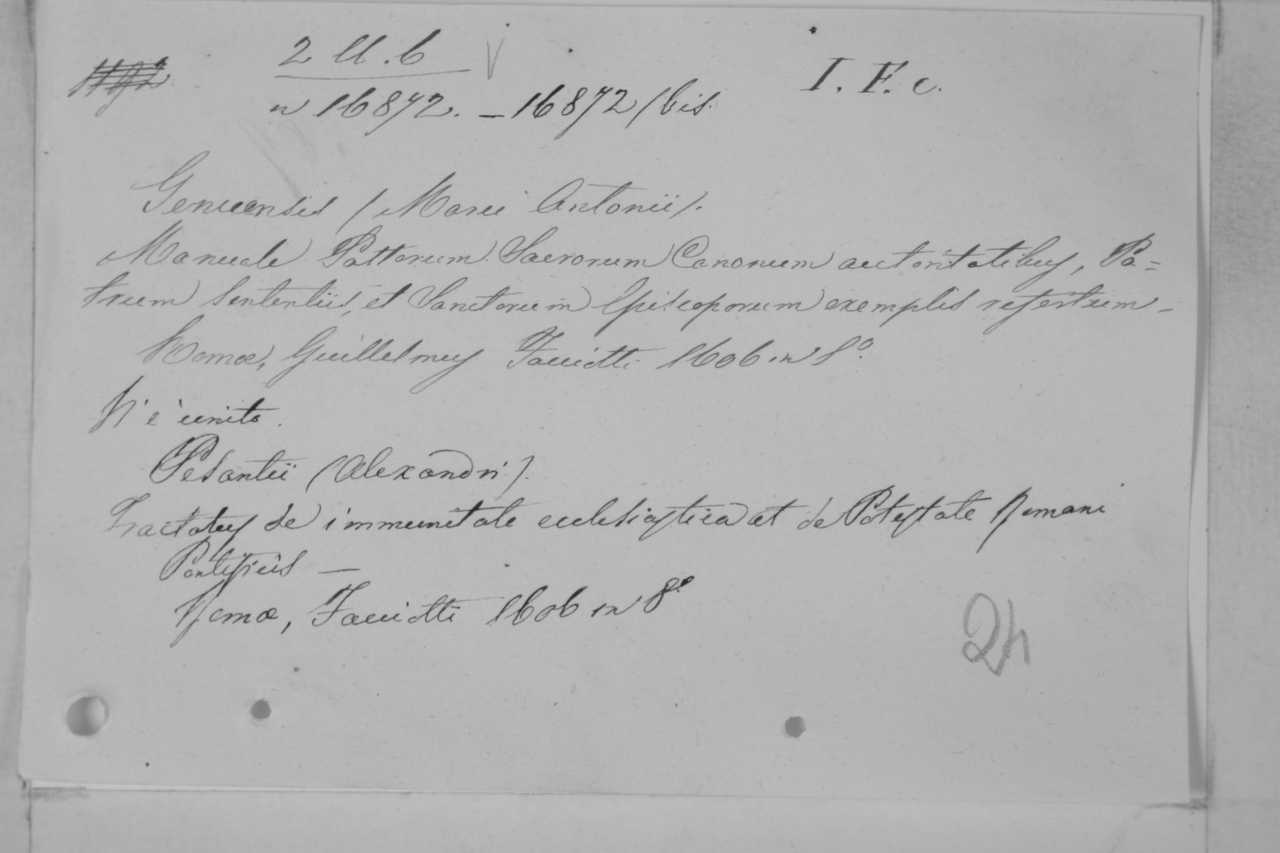 2 U. 6 V
n 16872. - 16872/bis.
I. F. c.
Genuensis (Marci Antonii).
Manuale Pastorum Sacrorum Canonum auctoritatibus, Pa=
trum Sententiis, et Sanctorum Episcoporum exemplis refertum -
Romæ, Guillelmus Facciotti 1606 in 8º
V'è unito.
Pesantii (Alexandri).
Tractatus de immunitate ecclesiastica et de Potestate Romani
Pontificis —
Romæ, Facciotti 1606 in 8º
24